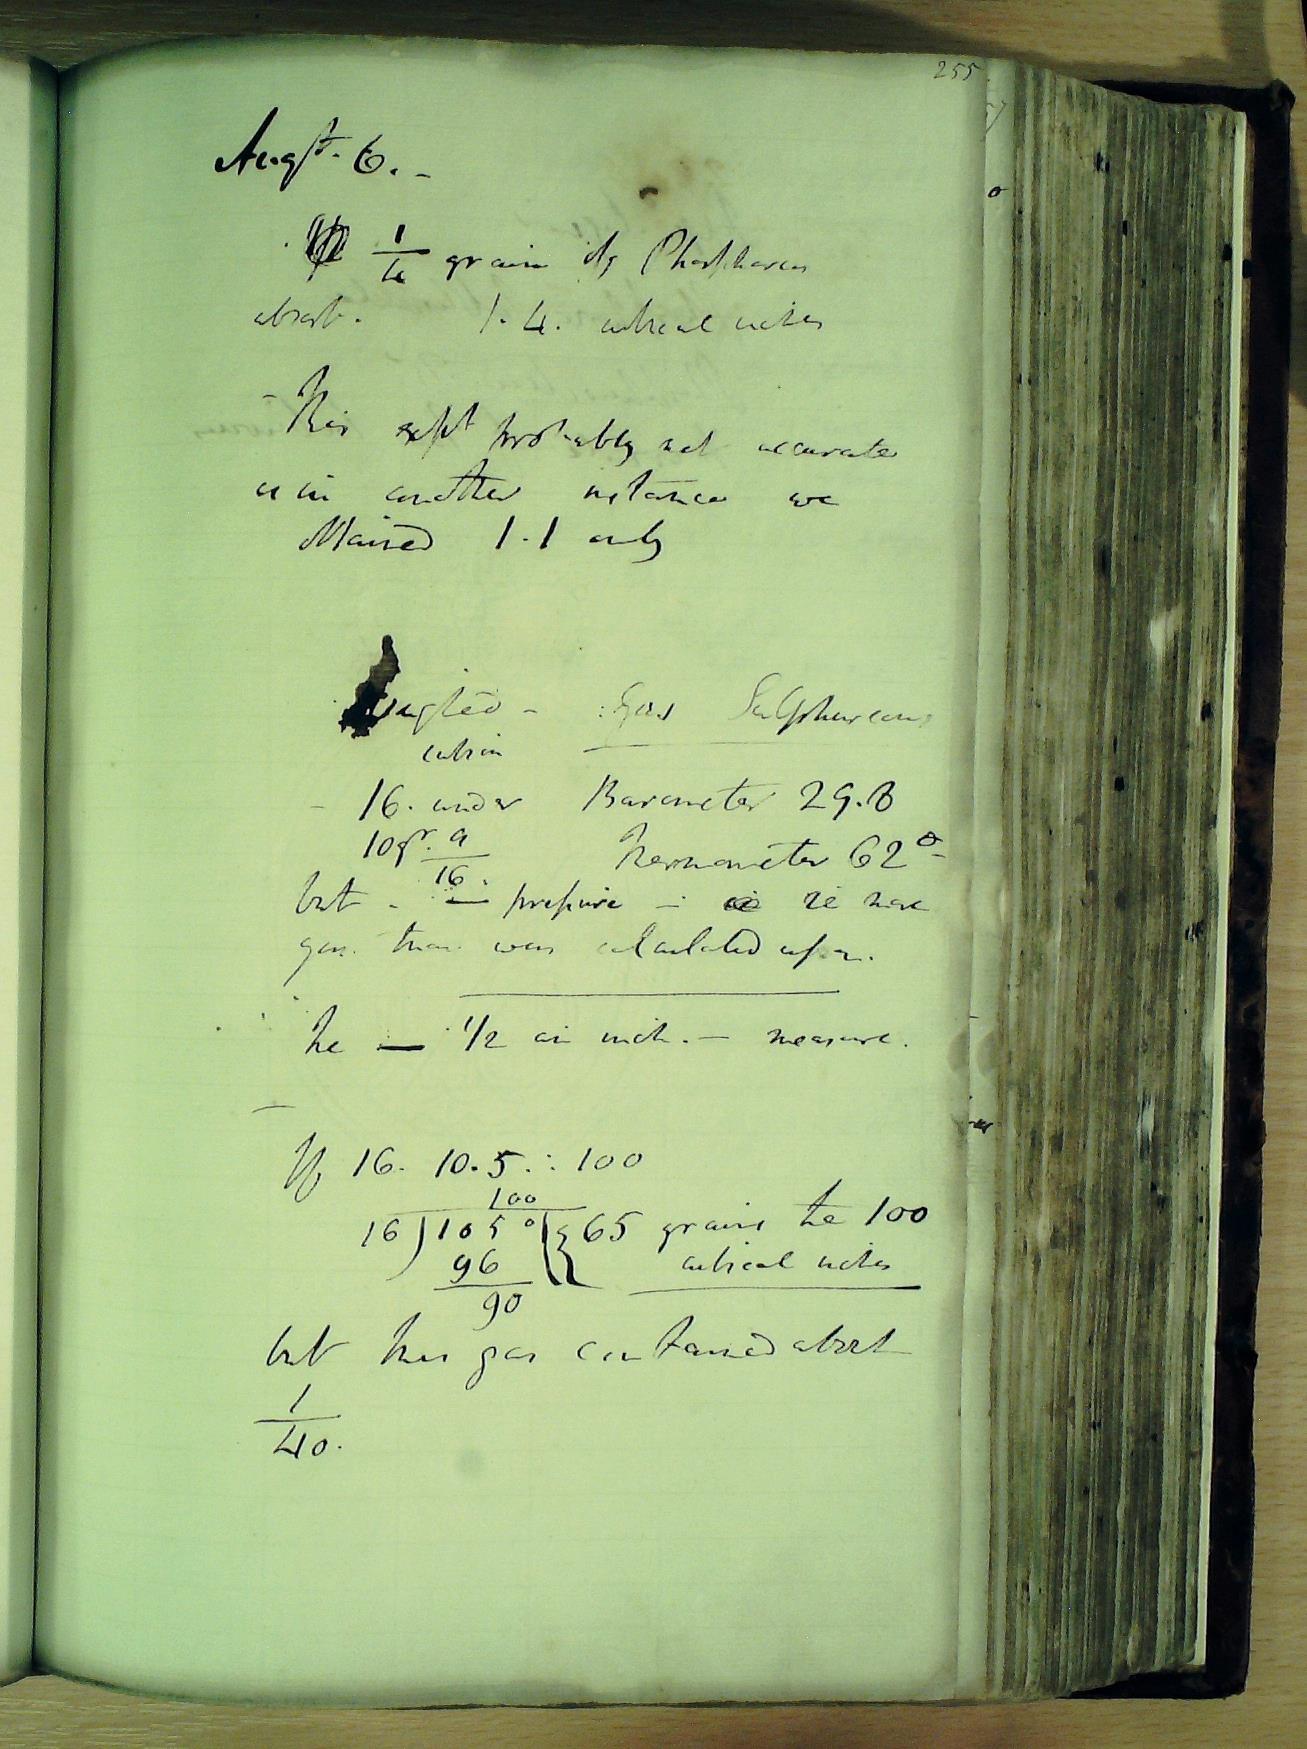 255
Augst. 6. -
1/4 grain of Phosphorus
absorb. 1.4. cubical inches
- This expt probably not accurate
as in another instance we
obtained 1.1 only
Weighed - Gas Sulphureous
cubin
- 16. under Barometer 29.8
10 gr. 9/16. Thermometer 62°
but - pressure - more
gas. than was calculated upon.
the — 1/2 an inch. — measure.
If 16. 10.5 :: 100
100
16 ) 1050 { 65 grains the 100
96 cubical inches
90
but this gas contained about
1/40.